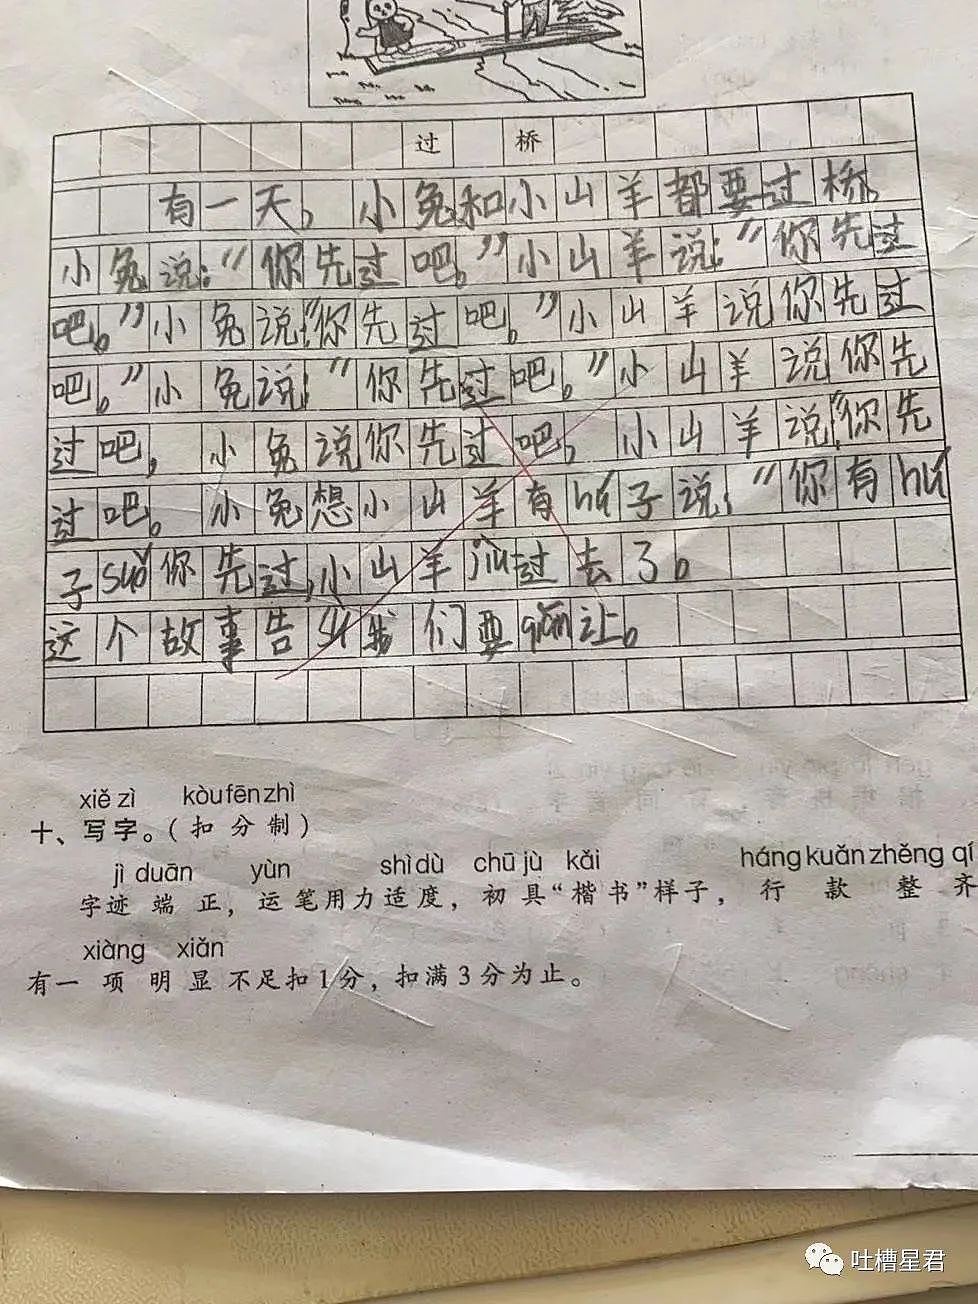 过桥
有一天，小兔和小山羊都要过桥。
小兔说：“你先过吧。”小山羊说：“你先过
吧。”小兔说：“你先过吧。”小山羊说你先过
吧。”小兔说：“你先过吧。”小山羊说你先
过吧，小兔说你先过吧，小山羊说：“你先
过吧。小兔想小山羊有hú子说：“你有hú
子suǒ你先过，小山羊jiù过去了。
这个故事告sù我们要qiān让。
xiě zì kòu fēn zhì
十、写字。(扣分制)
jì duān yùn shì dù chū jù kǎi háng kuǎn zhěng qí
字迹端正，运笔用力适度，初具“楷书”样子，行款整齐
xiàng xiǎn
有一项明显不足扣1分，扣满3分为止。
吐槽星君